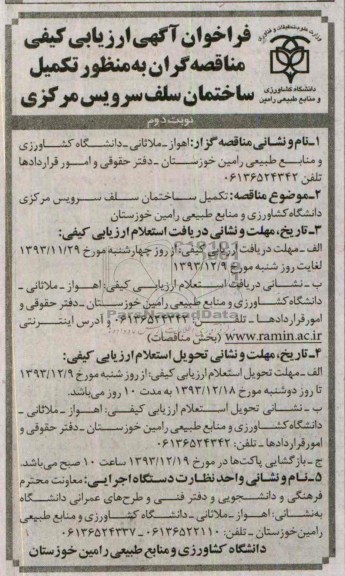 فراخوان آگهی ارزیابی کیفی
مناقصه گران به منظور تکمیل
ساختمان سلف سرویس مرکزی
وزارت علوم، تحقیقات و فناوری
دانشگاه کشاورزی
و منابع طبیعی رامین
نوبت دوم
۱ـ نام و نشانی مناقصه گزار: اهواز ـ ملاثانی ـ دانشگاه کشاورزی
و منابع طبیعی رامین خوزستان ـ دفتر حقوقی و امور قراردادها
تلفن ۰۶۱۳۶۵۲۴۳۴۲
۲ـ موضوع مناقصه: تکمیل ساختمان سلف سرویس مرکزی
دانشگاه کشاورزی و منابع طبیعی رامین خوزستان
۳ـ تاریخ، مهلت و نشانی دریافت استعلام ارزیابی کیفی:
الف ـ مهلت دریافت ارزیابی کیفی: از روز چهارشنبه مورخ ۱۳۹۳/۱۱/۲۹
لغایت روز شنبه مورخ ۱۳۹۳/۱۲/۹
ب ـ نشانی دریافت استعلام ارزیابی کیفی: اهواز ـ ملاثانی ـ
دانشگاه کشاورزی و منابع طبیعی رامین خوزستان ـ دفتر حقوقی و
امور قراردادها ـ تلفن: ۰۶۱۳۶۵۲۴۳۴۲ و آدرس اینترنتی
www.ramin.ac.ir (بخش مناقصات)
۴ـ تاریخ، مهلت و نشانی تحویل استعلام ارزیابی کیفی:
الف ـ مهلت تحویل استعلام ارزیابی کیفی: از روز شنبه مورخ ۱۳۹۳/۱۲/۹
تا روز دوشنبه مورخ ۱۳۹۳/۱۲/۱۸ به مدت ۱۰ روز می‌باشد.
ب ـ نشانی تحویل استعلام ارزیابی کیفی: اهواز ـ ملاثانی ـ
دانشگاه کشاورزی و منابع طبیعی رامین خوزستان ـ دفتر حقوقی و
امور قراردادها ـ تلفن: ۰۶۱۳۶۵۲۴۳۴۲
ج ـ بازگشایی پاکت‌ها در مورخ ۱۳۹۳/۱۲/۱۹ ساعت ۱۰ صبح می‌باشد.
۵ـ نام و نشانی واحد نظارت دستگاه اجرایی: معاونت محترم
فرهنگی و دانشجویی و دفتر فنی و طرح‌های عمرانی دانشگاه
به نشانی: اهواز ـ ملاثانی ـ دانشگاه کشاورزی و منابع طبیعی
رامین خوزستان ـ تلفن: ۰۶۱۳۶۵۲۲۱۱۰ ـ ۰۶۱۳۶۵۲۴۳۳۷
دانشگاه کشاورزی و منابع طبیعی رامین خوزستان